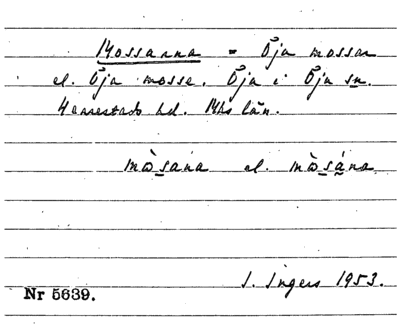 Mossarna = Öja mossar
el. Öja mosse. Öja i Öja sn.
Hemmestads hd. Mhs län.
måsana el. måsåna
I. Ingers 1953.
Nr 5639.